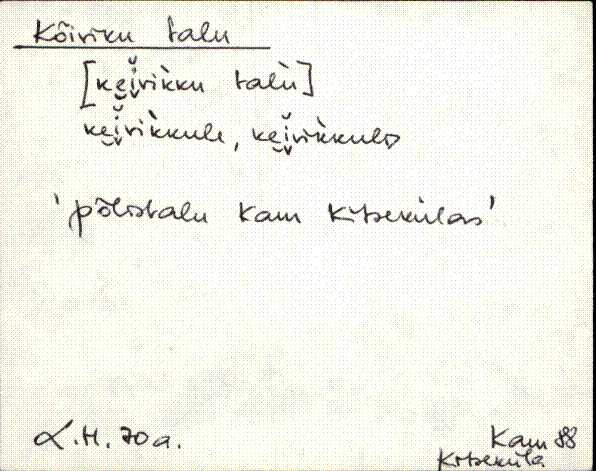 Kõiviku talu
[ke̮i̬vikku talu]
ke̮i̬vikkulɛ, ke̮i̬vikkulᴅ
'põlistalu Kam Kitseküläs'
L.H. 70 a.
Kam 88
Kitseküla